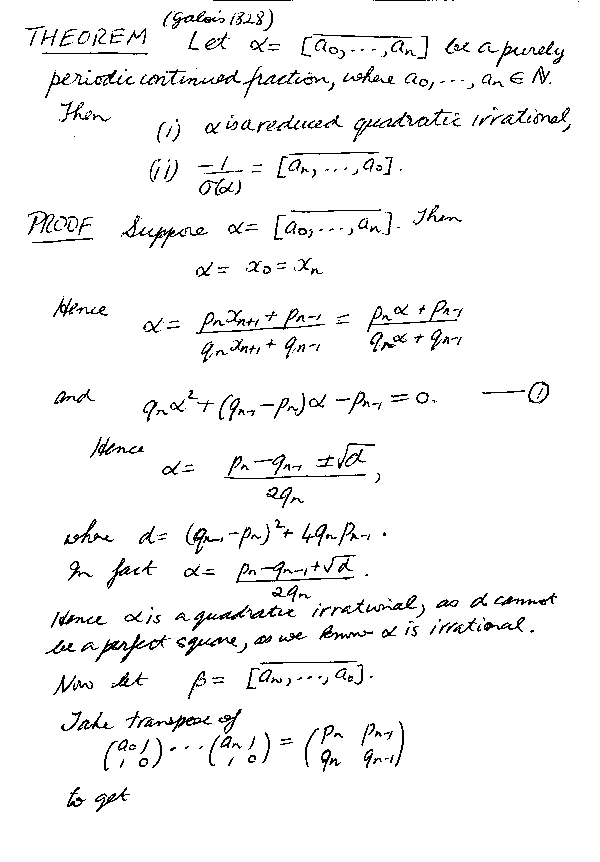 (Galois 1828)
THEOREM Let α = [a₀, ..., aₙ] be a purely
periodic continued fraction, where a₀, ..., aₙ ∈ ℕ.
Then
(i) α is a reduced quadratic irrational,
(ii) -1/σ(α) = [aₙ, ..., a₀].
PROOF Suppose α = [a₀, ..., aₙ]. Then
α = x₀ = xₙ
Hence α = (pₙxₙ₊₁ + pₙ₋₁)/(qₙxₙ₊₁ + qₙ₋₁) = (pₙα + pₙ₋₁)/(qₙα + qₙ₋₁)
and qₙα² + (qₙ₋₁ - pₙ)α - pₙ₋₁ = 0. —— ①
Hence
α = (pₙ - qₙ₋₁ ± √d)/2qₙ,
where d = (qₙ₋₁ - pₙ)² + 4qₙpₙ₋₁.
In fact α = (pₙ - qₙ₋₁ + √d)/2qₙ.
Hence α is a quadratic irrational, as d cannot
be a perfect square, as we know α is irrational.
Now let β = [aₙ, ..., a₀].
Take transpose of
(a₀ 1 / 1 0) ... (aₙ 1 / 1 0) = (pₙ pₙ₋₁ / qₙ qₙ₋₁)
to get